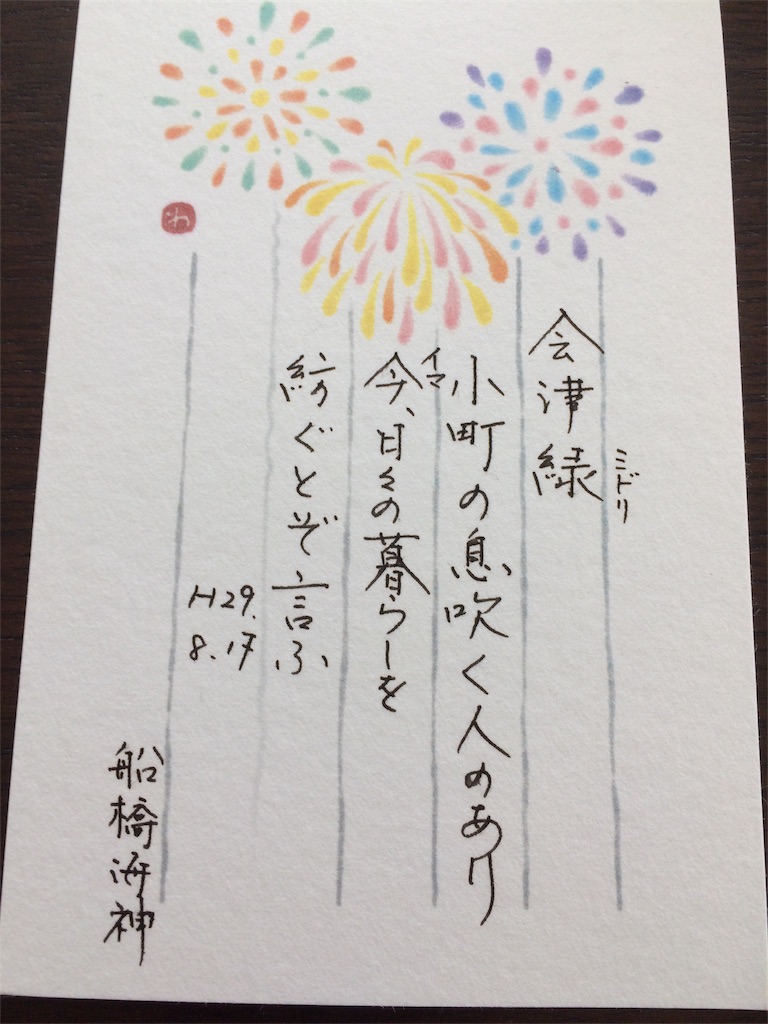 会津緑
ミドリ
小町の息吹く人のあり
イマ
今、日々の暮らしを
紡ぐとぞ言ふ
H29.
8.17
船橋海神
わ